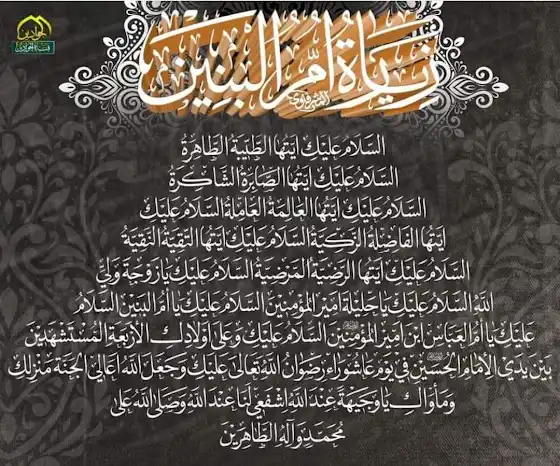 زيارة أم البنين
السَّلَامُ عَلَيْكِ أَيَّتُهَا الطَّيِّبَةُ الطَّاهِرَةُ
السَّلَامُ عَلَيْكِ أَيَّتُهَا الصَّابِرَةُ الشَّاكِرَةُ
السَّلَامُ عَلَيْكِ أَيَّتُهَا الْعَالِمَةُ الْعَامِلَةُ السَّلَامُ عَلَيْكِ
أَيَّتُهَا الْفَاضِلَةُ الزَّكِيَّةُ السَّلَامُ عَلَيْكِ أَيَّتُهَا التَّقِيَّةُ النَّقِيَّةُ
السَّلَامُ عَلَيْكِ أَيَّتُهَا الرَّضِيَّةُ الْمَرْضِيَّةُ السَّلَامُ عَلَيْكِ يَا زَوْجَةَ وَلِيِّ
اللهِ السَّلَامُ عَلَيْكِ يَا حَلِيلَةَ أَمِيرِ الْمُؤْمِنِينَ السَّلَامُ عَلَيْكِ يَا أُمَّ الْبَنِينَ السَّلَامُ
عَلَيْكِ يَا أُمَّ الْعَبَّاسِ ابْنِ أَمِيرِ الْمُؤْمِنِينَ السَّلَامُ عَلَيْكِ وَعَلَى أَوْلَادِكِ الْأَرْبَعَةِ الْمُسْتَشْهَدِينَ
بَيْنَ يَدَيِ الْإِمَامِ الْحُسَيْنِ فِي يَوْمِ عَاشُورَاءَ رِضْوَانُ اللهِ تَعَالَى عَلَيْكِ وَجَعَلَ اللهُ أَعَالِيَ الْجَنَّةِ مَنْزِلَكِ
وَمَأْوَاكِ يَا وَجِيهَةً عِنْدَ اللهِ اشْفَعِي لَنَا عِنْدَ اللهِ وَصَلَّى اللهُ عَلَى
مُحَمَّدٍ وَآلِهِ الطَّاهِرِينَ